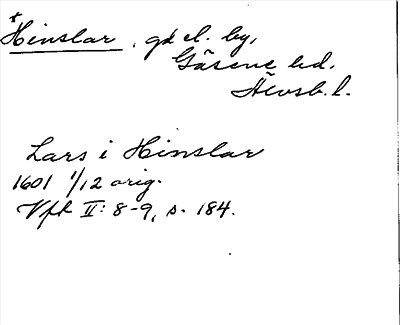 *Hinslar, gd el. by,
Gäsene hd.
Älvsb. l.
Lars i Hinslar
1601 1/12 orig.
Vft II: 8-9, s. 184.